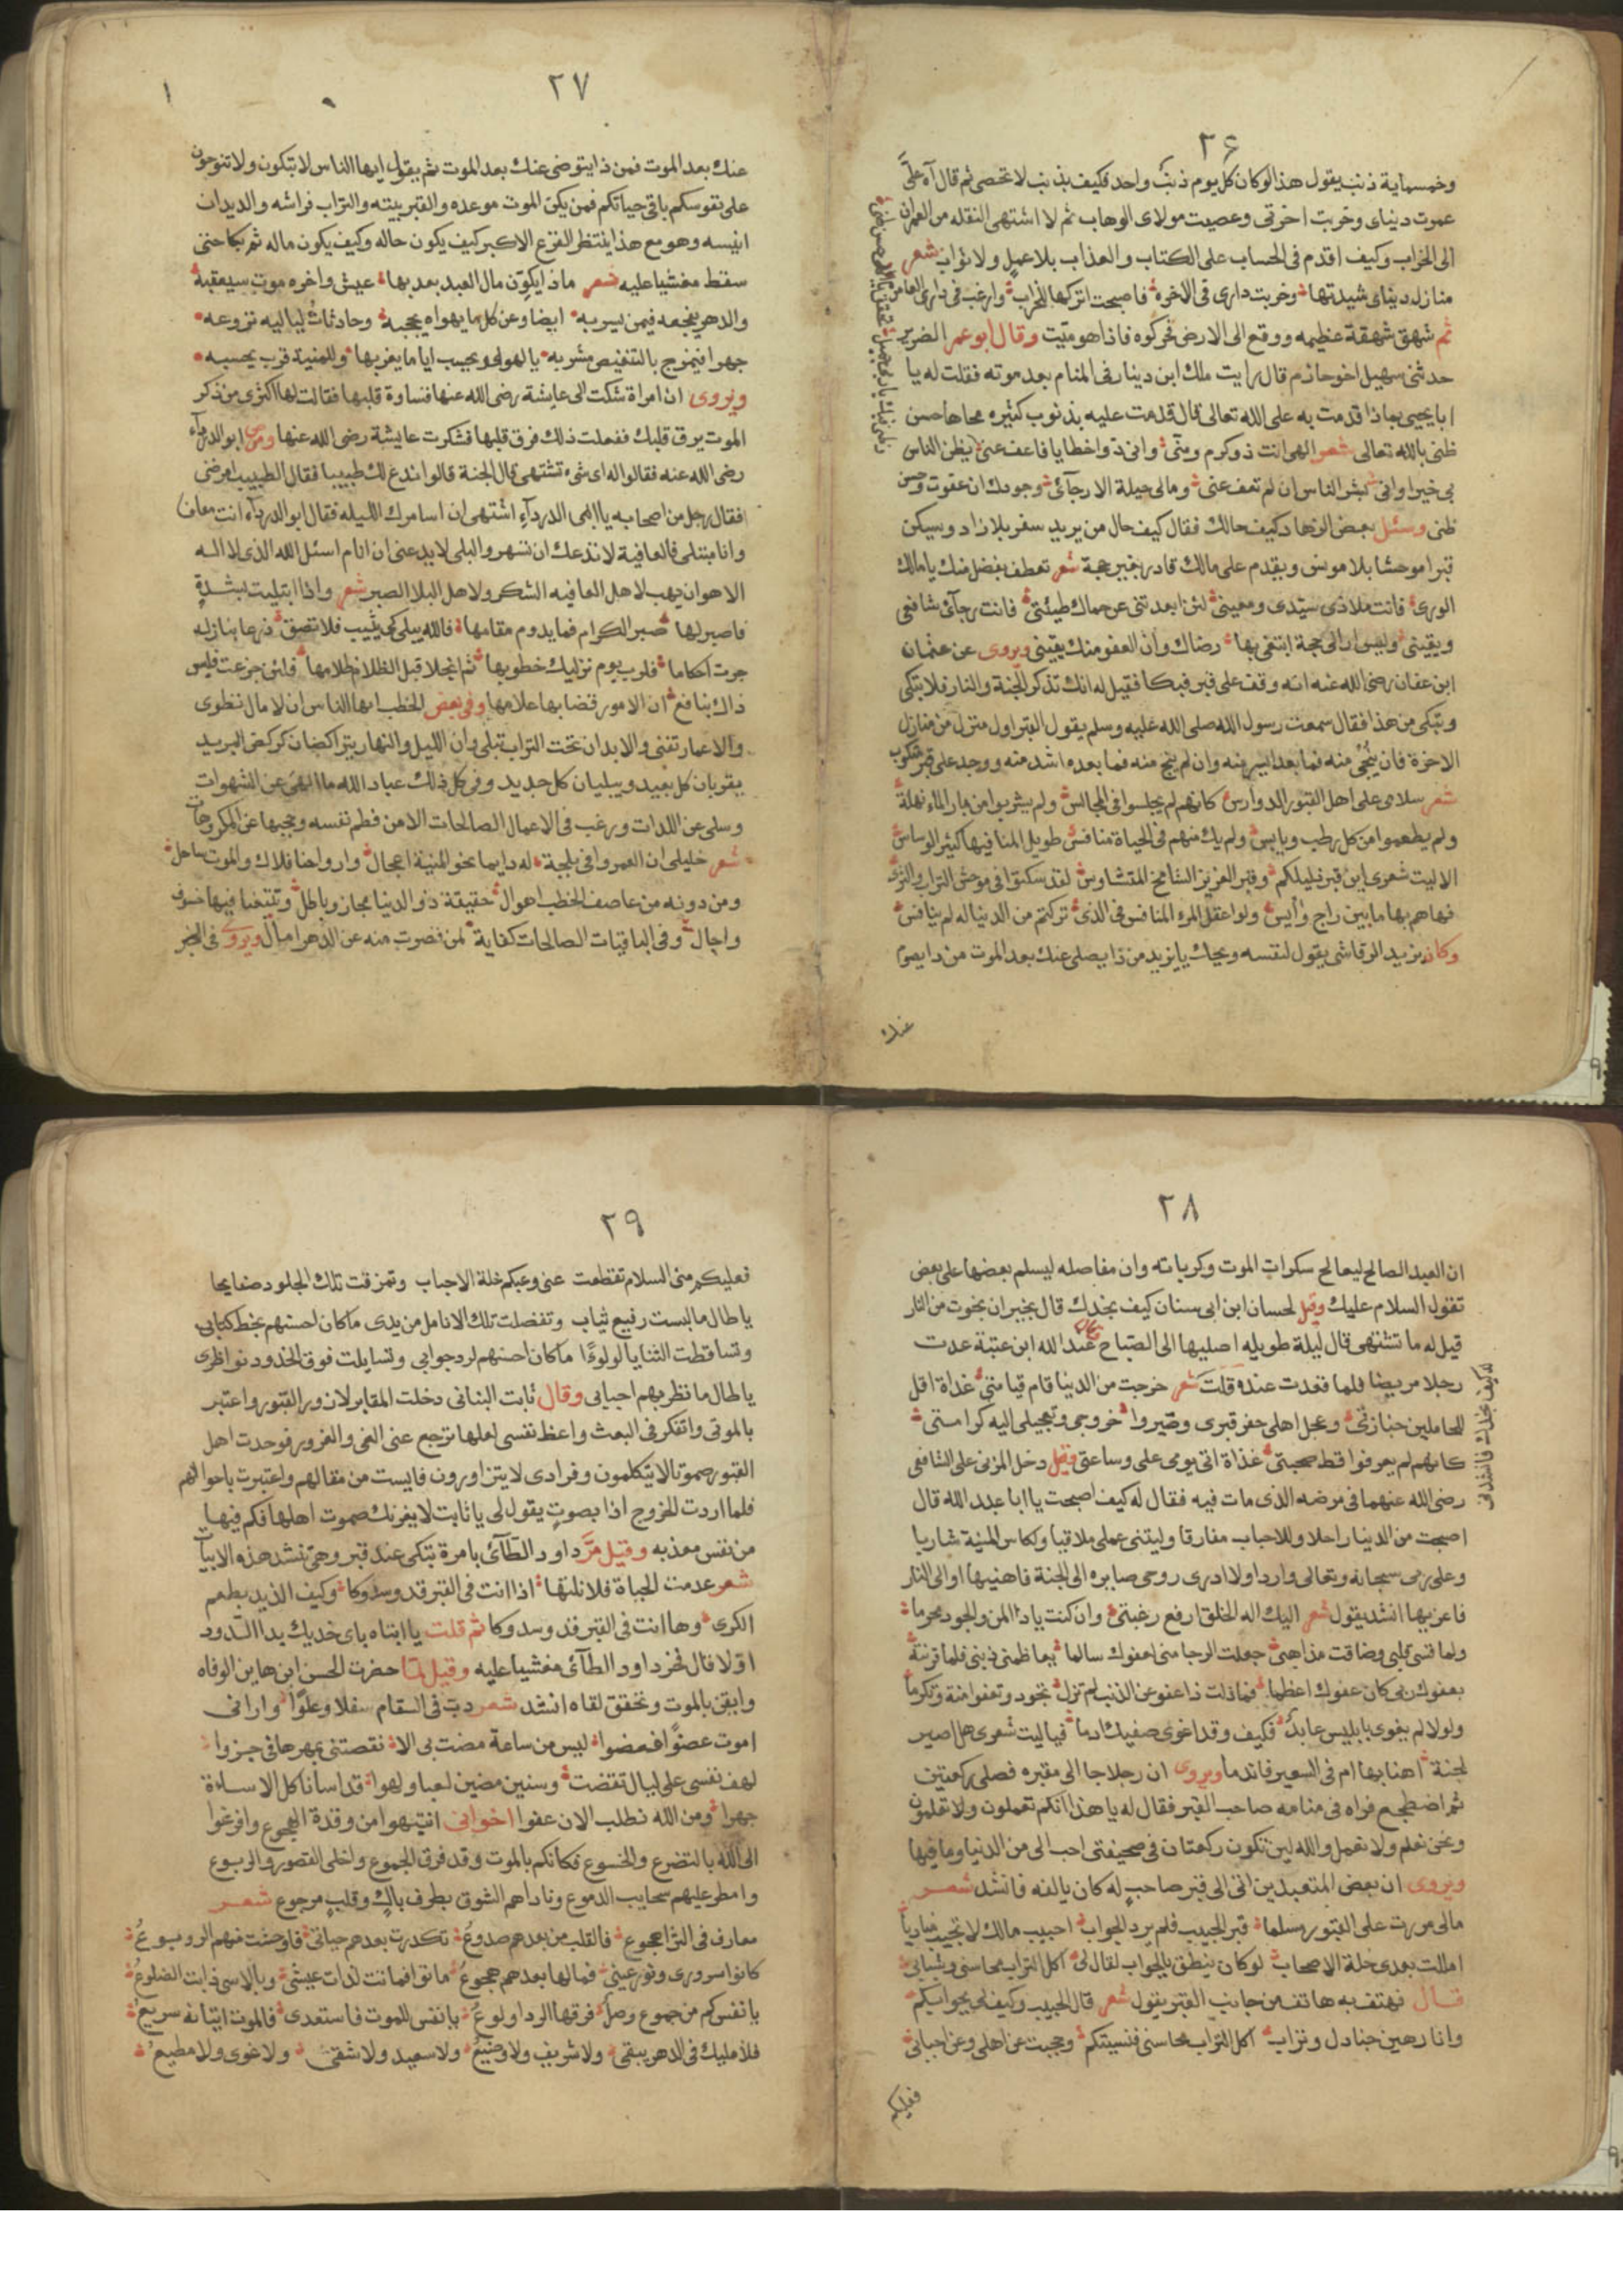 ٢٦
وخمسماية ذنب يقول هذا لو كان كل يوم ذنب واحد فكيف بذنوب لا تحصى ثم قال آه علىَّ
عمرت دنياى وخربت اخرتى وعصيت مولاى الوهاب ثم لا اشتهى النقله من العمران
الى الخراب وكيف اقدم فى الحساب على الكتاب والعذاب بلا عمل ولا ثواب شعر
منازل دنياى شيدتها وخربت دارى فى الاخره فاصبحت اتركها للخراب وارغب فى دارى العامره
ثم شهق شهقة عظيمه ووقع الى الارض فحركوه فاذا هو ميّت وقال ابو عمر الضرير
حدثنى سهيل اخو حازم قال رايت ملك ابن دينار فى المنام بعد موته فقلت له يا
ابا يحيى بماذا قدمت به على الله تعالى قال قدمت عليه بذنوب كثيره محاها حسن
ظنى بالله تعالى شعر الهى انت ذو كرم ومنّ وانى ذو اخطايا فاعف عنى يظن الناس
بى خيرا وانى لشر الناس ان لم تعف عنى ومالى حيلة الا رجآئى وجودك ان عفوت وحسن
ظنى وسئل بعض الزهاد كيف حالك فقال كيف حال من يريد سفر بلا زاد ويسكن
قبرا موحشا بلا مونس ويقدم على مالك قادر بغير حجة شعر تعطف بفضل منك يا مالك
الورى فانت ملاذى سيّدى ومعينى لئن ابعدتنى عن حماك خطيئتى فانت رجآئى شافعى
ويقينى وليس ارالى حجة ابتغى بها رضاك وان العفو منك يقينى ويروى عن عثمان
ابن عفان رضى الله عنه انه وقف على قبر فبكا فقيل له انك تذكر الجنة والنار فلا تبكى
وتبكى من هذا فقال سمعت رسول الله صلى الله عليه وسلم يقول القبر اول منزل من منازل
الاخرة فان ينجى منه فما بعد ايسر منه وان لم ينج منه فما بعده اشد منه ووجد على قبر مكتوب
شعر سلامى على اهل القبور الدوارس كانهم لم يجلسوا فى المجالس ولم يشربوا من بارد الماء نهلة
ولم يطعموا من كل رطب ويابس ولم يك منهم فى الحياة منافس طويل المنا فيها كثير الوساس
الا ليت شعرى اين قبر ذليلكم وقبر العزيز الشامخ المتشاوس لقد سكنوا فى موحش التراب والثرى
فهاهم بها ما بين راج وآيس ولو اعقل المرء المنافس فى الذى تركتم من الدنيا له لم ينافس
وكان يزيد الرقاشى يقول لنفسه ويحك يا يزيد من ذا يصلى عنك بعد الموت من ذا يصوم
عنك
٢٧
عنك بعد الموت فمن ذا يتوضى عنك بعد الموت ثم يقول ايها الناس لا تبكون ولا تنوحون
على نفوسكم باقى حياتكم فمن يكن الموت موعده والقبر بيته والتراب فراشه والديدان
انيسه وهو مع هذا ينتظر الفزع الاكبر كيف يكون حاله وكيف يكون ماله ثم بكا حتى
سقط مغشيا عليه شعر ماذا يكون مال العبد بعد بها عيش واخره موت سيعقبه
والدهر يفجعه فيمن يسر به ايضا وعن كل ما يهواه يحجبه وحادثاتُ لياليه تروعه
جهرا فيمزج بالتنغيص مشربه يا لهو لى ويحبب اياما يغر بها وللمنية قرب يحسبه
ويروى ان امراة شكت الى عايشة رضى الله عنها قساوة قلبها فقالت لها اكثرى من ذكر
الموت يرق قلبك ففعلت ذلك فرق قلبها فشكرت عايشة رضى الله عنها ومرض ابو الدردآء
رضى الله عنه فقالوا له اى شىء تشتهى قال الجنة قالوا ندع لك طبيبا فقال الطبيب امرضنى
فقال رجل من اصحابه يا ابى الدردآء اشتهى ان اسامرك الليله فقال ابو الدردآء انت معاف
وانا مبتلى فالعافية لا تدعك ان تسهر والبلى لا يدعنى ان انام اسئل الله الذى لا اله
الا هو ان يهب لاهل العافيه الشكر ولاهل البلا الصبر شعر واذا ابتليت بشدةٍ
فاصبر لها صبر الكرام فما يدوم مقامها فالله يبلى كى يثيب فلا تضق ذرعا بنازله
جرت احكاما فلرب يوم نزليك خطوبها ثم انجلا قبل الظلام ظلامها ولئن جزعت فليس
ذاك بنافع ان الامور قضا بها علامها وفى بعض الخطب ايها الناس ان الامال تطوى
والاعمار تفنى والابدان تحت التراب تبلى وان الليل والنهار يتراكضان كركض البريد
يقربان كل بعيد ويبليان كل جديد وفى كل ذلك عباد الله ما الهى عن الشهوات
وسلى عن اللذات ورغب فى الاعمال الصالحات الا من فطم نفسه وحجبها عن المكروهات
شعر خليلى ان العمر وافى بلجة له دايما نحو المنية اعجال وارواحنا فلاك والموت ساحل
ومن دونه من عاصف الخطب اهوال حقيقة ذو الدنيا مجاز وباطل وتتبعنا فيها خسوف
واجال وفى الباقيات الصالحات كفاية لمن قصرت منه عن الدهر امال ويروى فى الخبر
٢٨
ان العبد الصالح ليعالج سكرات الموت وكرباته وان مفاصله ليسلم بعضها على بعض
تقول السلام عليك وقيل لحسان ابن ابى سنان كيف نجدك قال بخير ان نجوت من النار
قيل له ما تشتهى قال ليلة طويله اصليها الى الصباح عبد الله ابن عتبة عدت
رجلا مريضا فلما قعدت عنده قلت شعر خرجت من الدنيا قام قيامتى غداة اقل
الحاملين جنازتى وعجل اهلى حفر قبرى وصيروا خروجى وتعجيلى اليه كرامتى
كانهم لم يعرفوا قط صحبتى غداة اتى يومى على وساعتى وقيل دخل المزنى على الشافعى
رضى الله عنهما فى مرضه الذى مات فيه فقال له كيف اصبحت يا ابا عبد الله قال
اصبحت من الدنيا راحلا وللاحباب مفارقا وليتنى عملى ملاقيا ولكاس المنية شاربا
وعلى ربى سبحانه وتعالى واردا ولا ادرى روحى صايره الى الجنة فاهنيها او الى النار
فاعزيها انشد يقول شعر اليك اله الخلق ارفع رغبتى وان كنت ياذا المن والجود مجرما
ولما قسى قلبى وضاقت مذاهبى جعلت الرجا منى لعفوك سالما تعاظمنى ذنبى فلما قرنته
بعفوك ربى كان عفوك اعظما فما ذلت ذا عفو عن الذنب لم تزل تجود وتعفو امنة وتكرما
ولولا لم يغوى بابليس عابد فكيف وقد اغوى صفيك ادما فياليت شعرى هل اصير
لجنة اهنا بها ام فى السعير فاندما ويروى ان رجلا جا الى مقبره فصلى ركعتين
ثم اضطجع فراه فى منامه صاحب القبر فقال له يا هذا انكم تعملون ولا تعلمون
ونحن نعلم ولا نعمل والله لين تكون ركعتان فى صحيفتى احب الى من الدنيا وما فيها
ويروى ان بعض المتعبدين اتى الى قبر صاحب له كان يالفه فانشد شعر
مالى مررت على القبور مسلما قبر الحبيب فلم يرد الجواب احبيب مالك لا تجيب مناديا
امللت بعدى خلة الاصحاب لو كان ينطق بالجواب لقال لى اكل التراب محاسنى وشبابى
قال فهتف به هاتف من جانب القبر يقول شعر قال الحبيب وكيف لى بجوابكم
وانا رهين جنادل وتراب اكل التراب محاسنى فنسيتكم وحجبت عن اهلى وعن احبابى
فعليكم
٢٩
فعليكم منى السلام تقطعت عنى وعنكم خلة الاحباب وتمزقت تلك الجلود صفايحا
يا طال ما لبست رفيع ثياب وتفصلت تلك الانامل من يدى ما كان احسنهم بخط كتابى
وتساقطت الثنايا لولوءًا ما كان احسنهم لرد جوابى وتسايلت فوق الخدود نواظرى
يا طال ما نظر بهم احبابى وقال ثابت البنانى دخلت المقابر لازور القبور واعتبر
بالموتى واتفكر فى البعث واعظ نفسى لعلها ترجع عنى الغى والغرور فوجدت اهل
القبور صموتا لا يتكلمون وفرادى لا يتزاورون فايست من مقالهم واعتبرت باحوالهم
فلما اردت الخروج اذا بصوتٍ يقول لى يا ثابت لا يغرنك صموت اهلها فكم فيها
من نفس معذبه وقيل مرَّ داود الطآئى بامرة تبكى عند قبر وهى تنشد هذه الابيات
شعر عدمت الحياة فلا نلتها اذا انت فى القبر قد وسدوكا وكيف الذيذ بطعم
الكرى وها انت فى القبر قد وسدوكا ثم قلت يا ابتاه باى خديك بدا الدود
اوّلا قال فخر داود الطآئى مغشيا عليه وقيل لمّا حضرت الحسن ابن هاين الوفاه
وايقن بالموت وتحقق لقاه انشد شعر دب فى السقام سفلا وعلوًا وارانى
اموت عضوًا فعضوا ليس من ساعة مضت بى الا نقصتنى بمرها فى جزوا
لهف نفسى على ليال تقضت وسنين مضين لعبا ولهوا قد اسأنا كل الاساءة
جهرا ومن الله نطلب الان عفوا اخوانى انتبهوا من وقدة الهجوع وافزعوا
الى الله بالتضرع والخسوع فكانكم بالموت وقد فرق الجموع واخلى القصور والربوع
وامطر عليهم سحايب الدموع وناداهم الشوق بطرف باكٍ وقلبٍ مرجوع شعر
معارف فى الثرا هجوع فالقلب من بعدهم صدوعُ تكدرت بعدهم حياتى فاوحشت منهم الربوعُ
كانوا سرورى ونور عينى فمالها بعدهم هجوع ماتوا فماتت لذات عيشى وبالاسى ذابت الضلوعُ
يا نفس كم من جموع وصل فرقها الردا ولوعُ يا نفس للموت فاستعدى فالموت اتيانه سريعُ
فلا مليك فى الدهر يبقى ولا شريف ولا وضيعُ ولا سعيد ولا شقى ولا غوى ولا مطيعُ